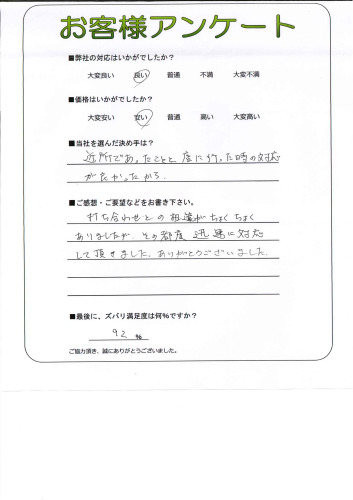 お客様アンケート
■弊社の対応はいかがでしたか？
大変良い 良い 普通 不満 大変不満
■価格はいかがでしたか？
大変安い 安い 普通 高い 大変高い
■当社を選んだ決め手は？
近所であったことと 度に行った時の対応
が良かったから.
■ご感想・ご要望などをお書き下さい。
打ち合わせとの相違がちょくちょく
ありましたが、その都度 迅速に対応
して頂きました。ありがとうございました.
■最後に、ズバリ満足度は何%ですか？
92 %
ご協力頂き、誠にありがとうございました。